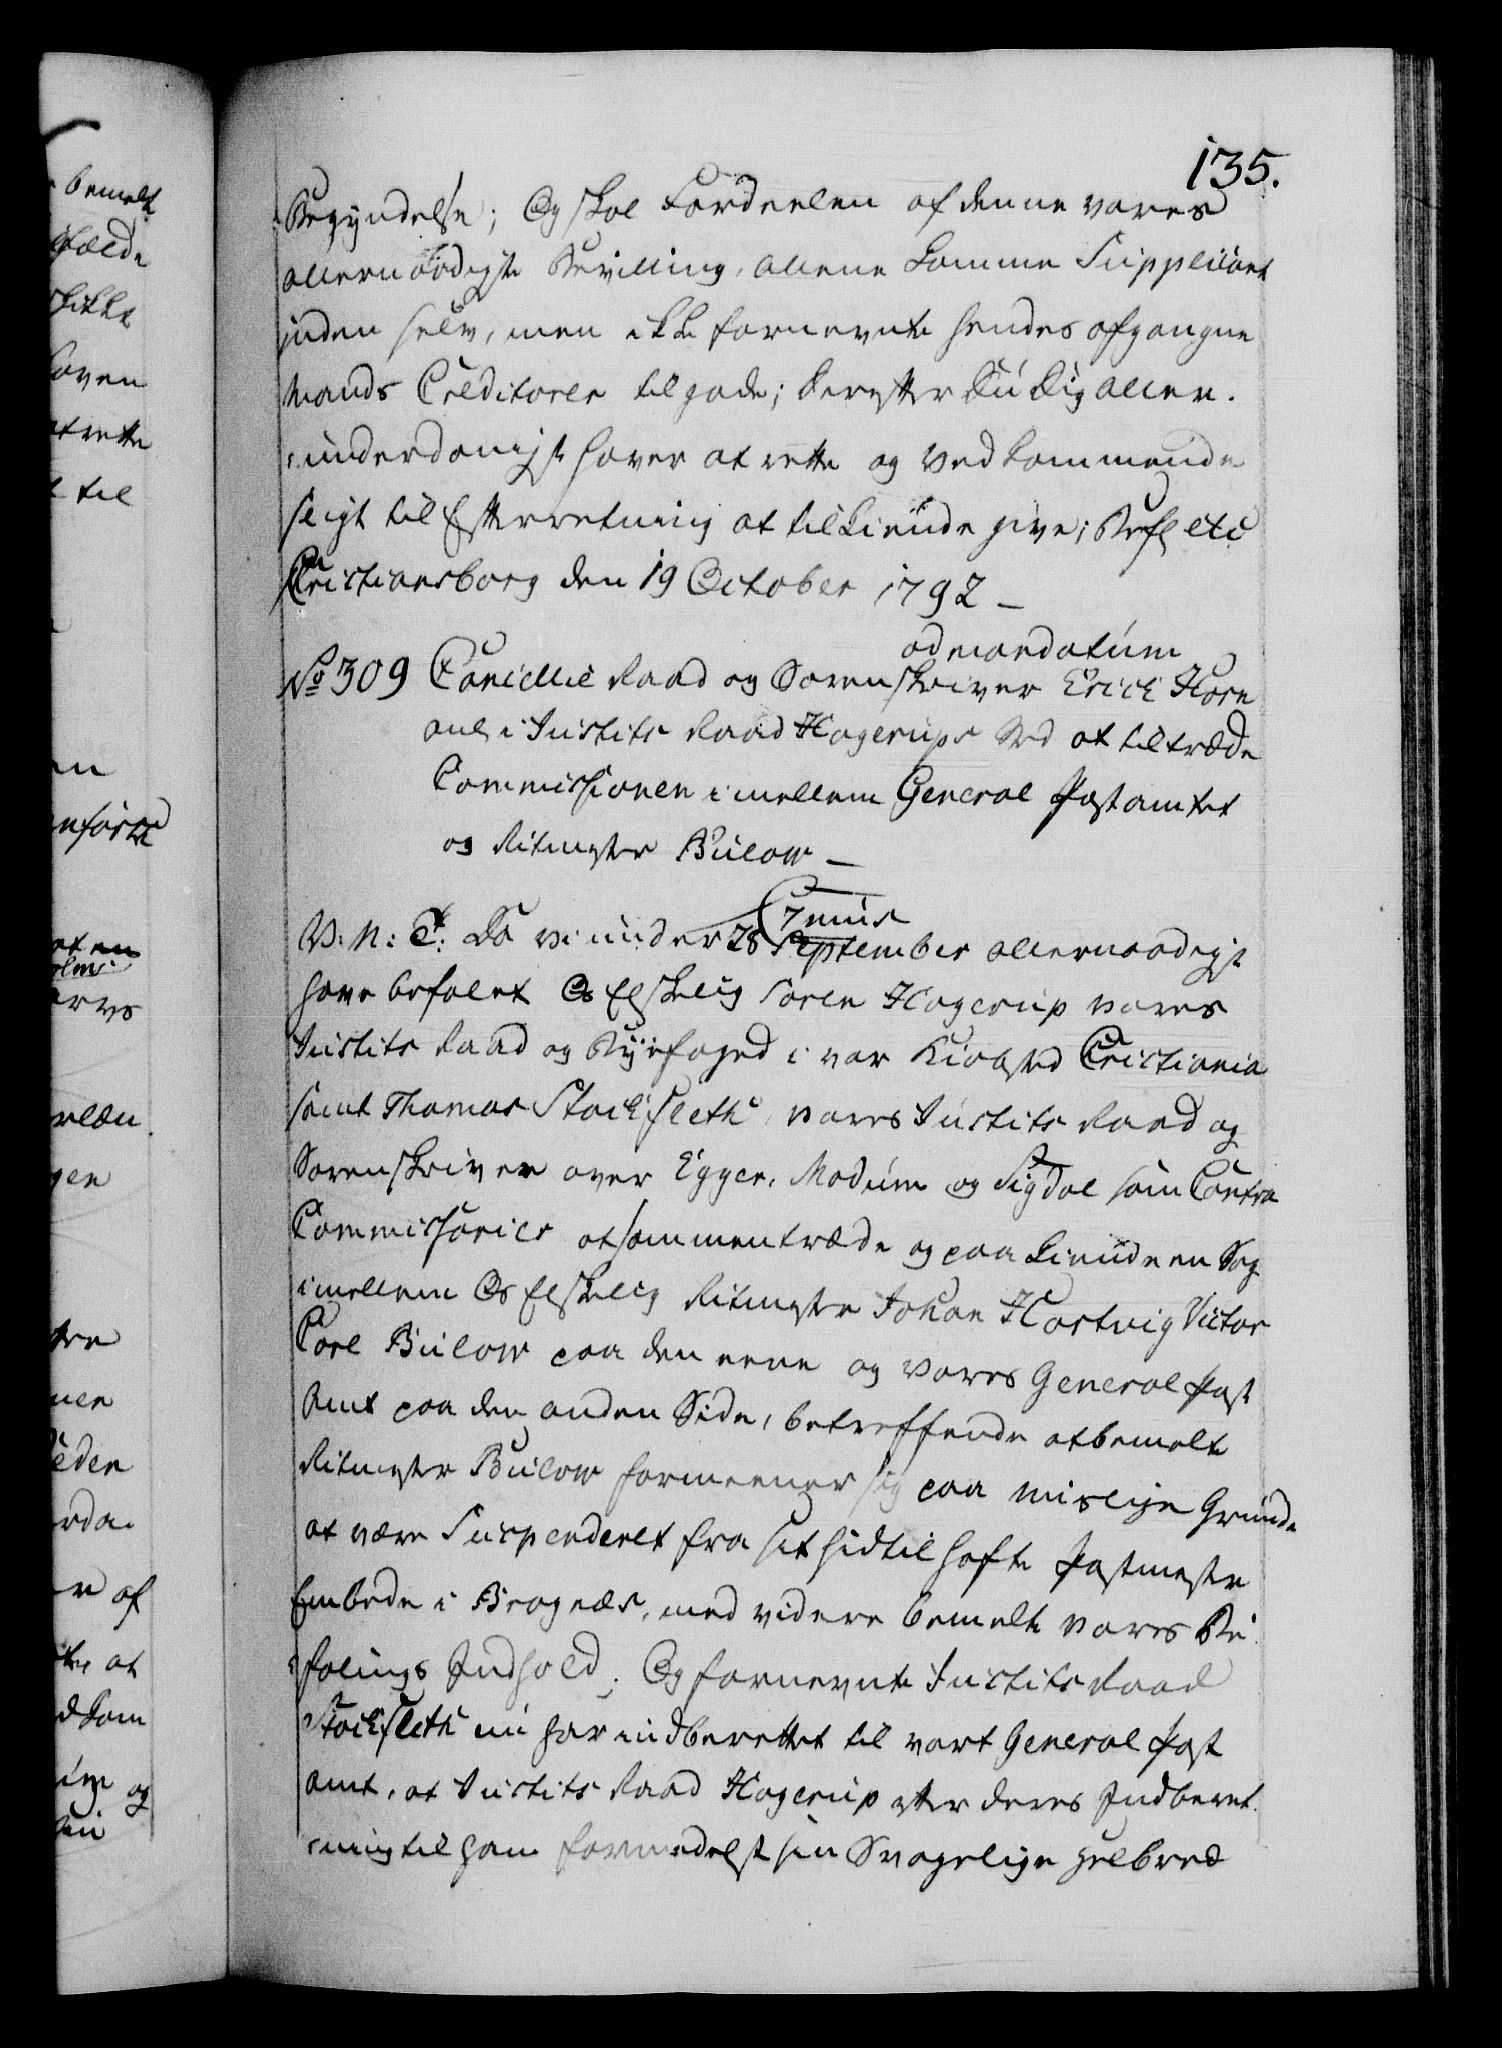 135.
Begyndelse; Og skal Fordeelen af denne vores
allernaadigste Bevilling, allene komme Supplicant
inden selv, men ikke fornevnte hendes afgangne
Mands Creditorer til gode; derefter Du Dig aller-
underdanigst haver at rette og Vedkommende
sligt til Efterretning at tilkiende give; Befl etc
Cristiansborg den 19 October 1792 —
ad mandatum
No 309 Cancellie Raad og Sorenskriver Erich Horn
anl. i Justits Raad Hagerups Sted at tiltræde
Commissionen imellem General Postamtet
og Ritmester Bülow —
V: N: T: Da vi under 28 7mis September allernaadigst
have befalet Os Elskelig Soren Hagerup vores
Justits Raad og Byefoged i vor Kiøbsted Cristiania
samt Thomas Stockfleth, vores Justits Raad og
Sorenskriver over Egger, Modum og Sigdal som Contra
Commissarier at sammentræde og paa kiende en Sag
imellem Os Elskelig Ritmester Johan Hartvig Victor
Carl Bülow paa den eene og vores General Post
Amt paa den anden Side, betreffende at bemelte
Ritmester Bülow formeener sig paa mislige Grunde
at være Suspenderet fra sit hidtil hafte Postmester
Embede i Bragnæs, med videre bemelte vores Be-
falings Indhold; Og fornevnte Justits Raad
Stockfleth nu har indberettet til vort General Post
amt, at Justits Raad Hagerup efter deres Indberet-
ning til ham formedelst sin Svagelige helbred